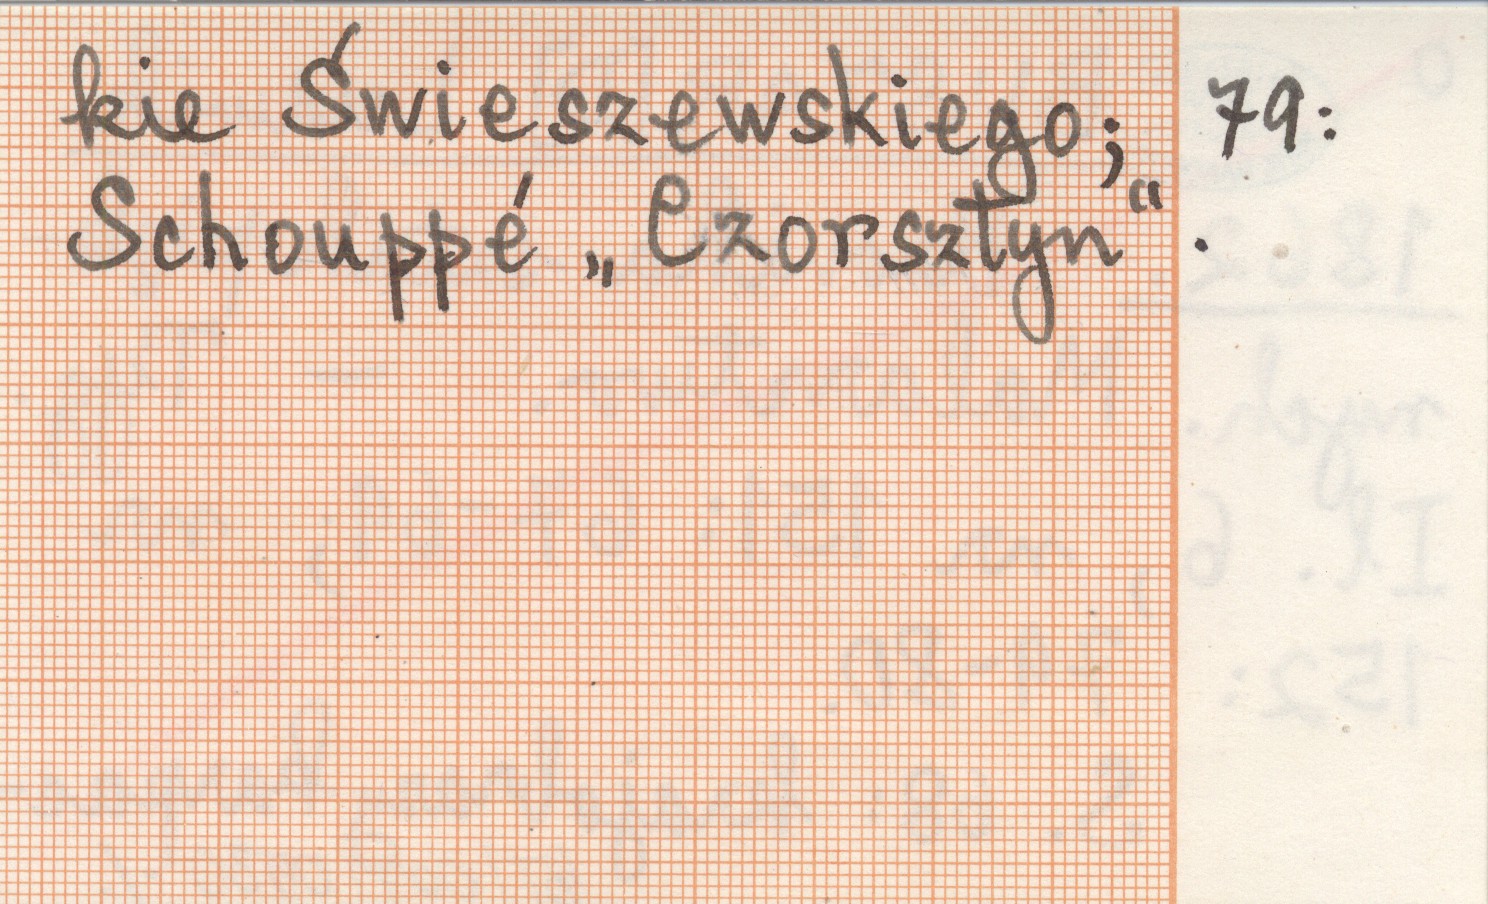 kie Świeszewskiego; 79:
Schouppé „Czorsztyn“.